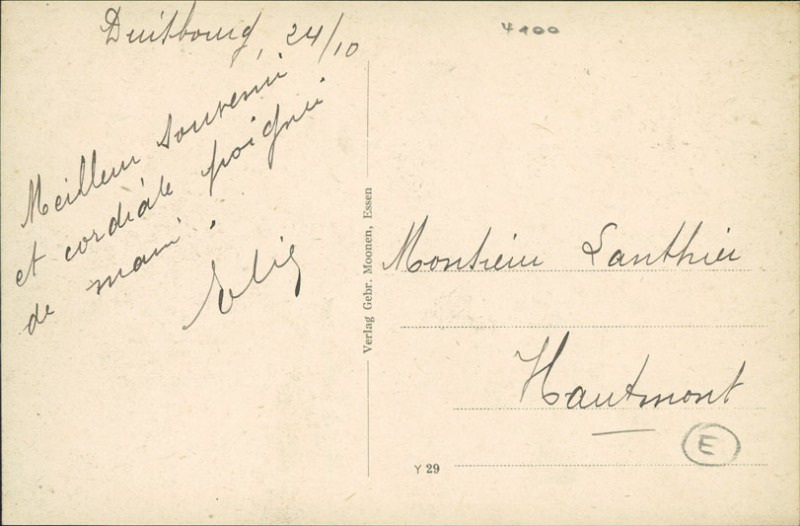 Duitbourg, 24/10
4100
Meilleur souvenir
et cordiale poignée
de main.
Verlag Gebr. Moonen, Essen
Monsieur Lanthier
Hautmont
E
Y 29